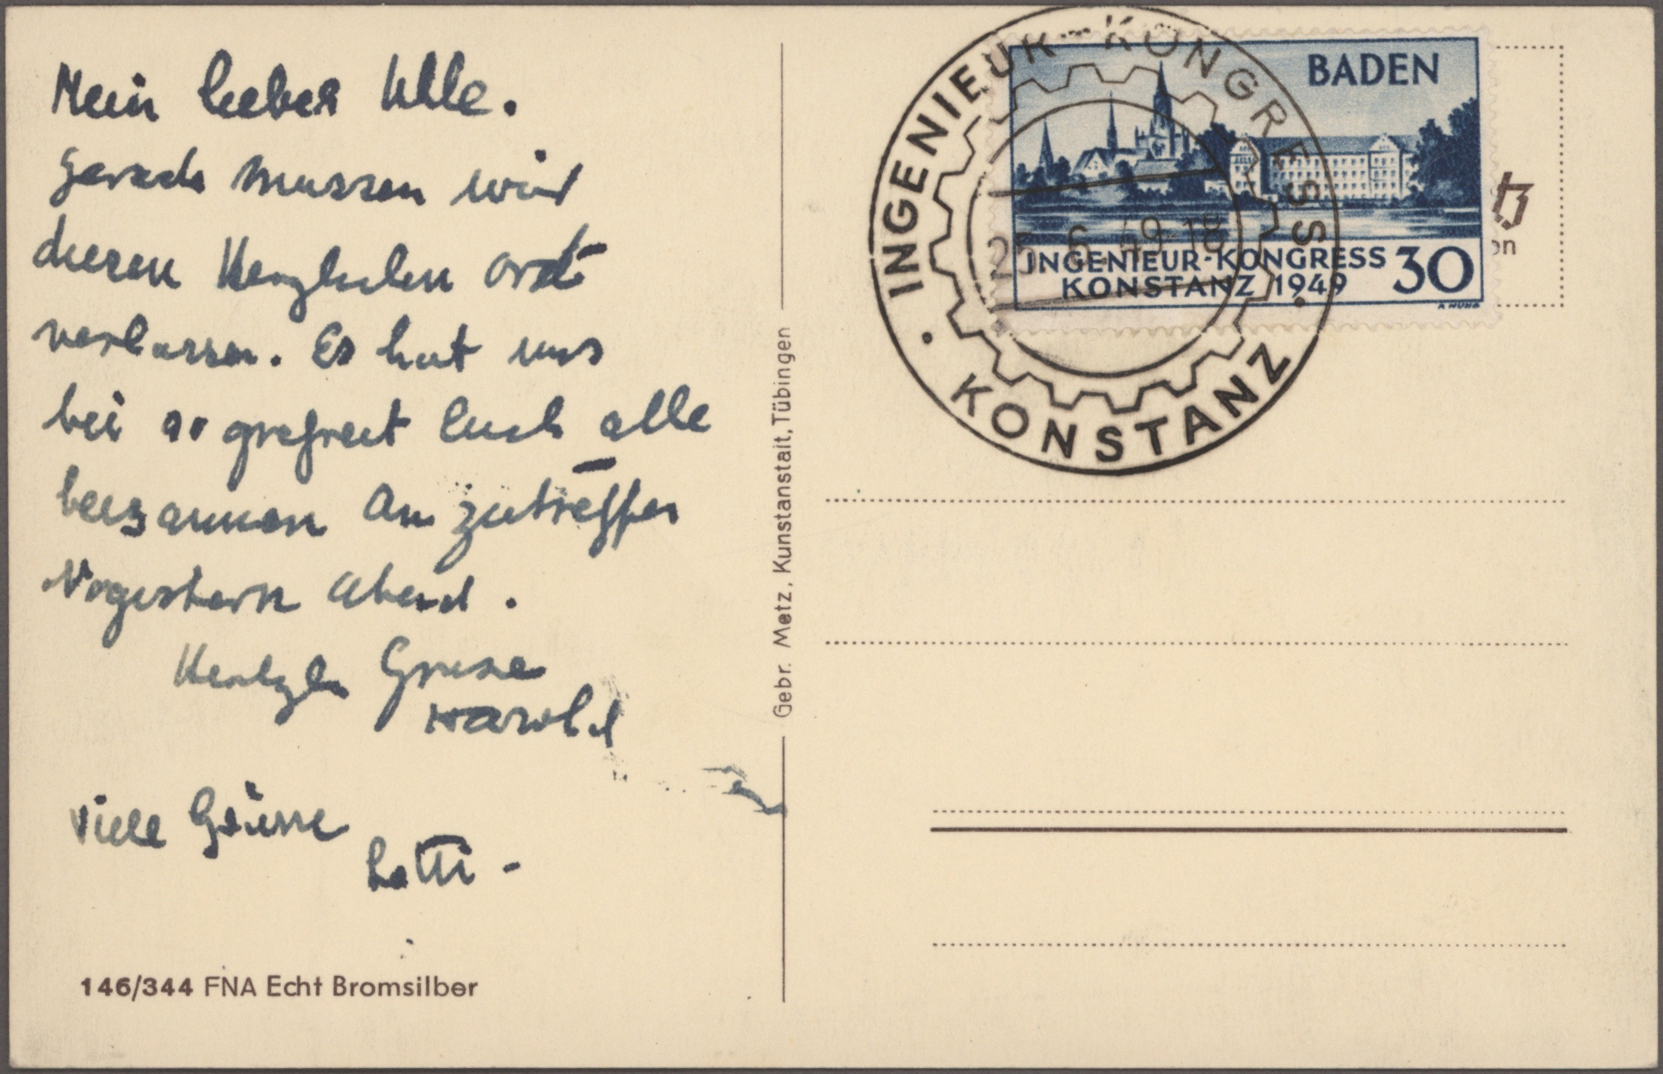 Mein lieber Uhle.
gerade mussen wir
diesen Herzlichen ort
verlassen. Es hat uns
bei so grefreut Euch alle
beisammen An zutreffen
abend.
Grusse
Harold
Viele Grüsse
Lotti -
146/344 FNA Echt Bromsilber
Gebr. Metz, Kunstanstalt, Tübingen
INGENIEUR-KONGRESS
25.6.49-18
• KONSTANZ •
BADEN
INGENIEUR-KONGRESS
KONSTANZ 1949
30
tz
on